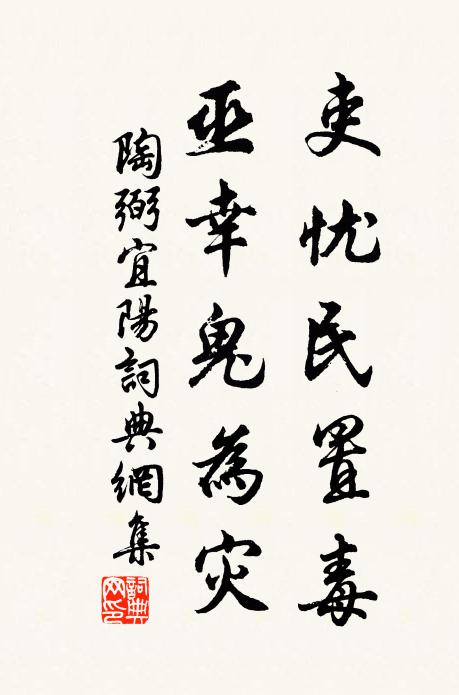 吏忧民置毒
巫幸鬼為灾
陶弼宜陽詞典網集
詞典网印